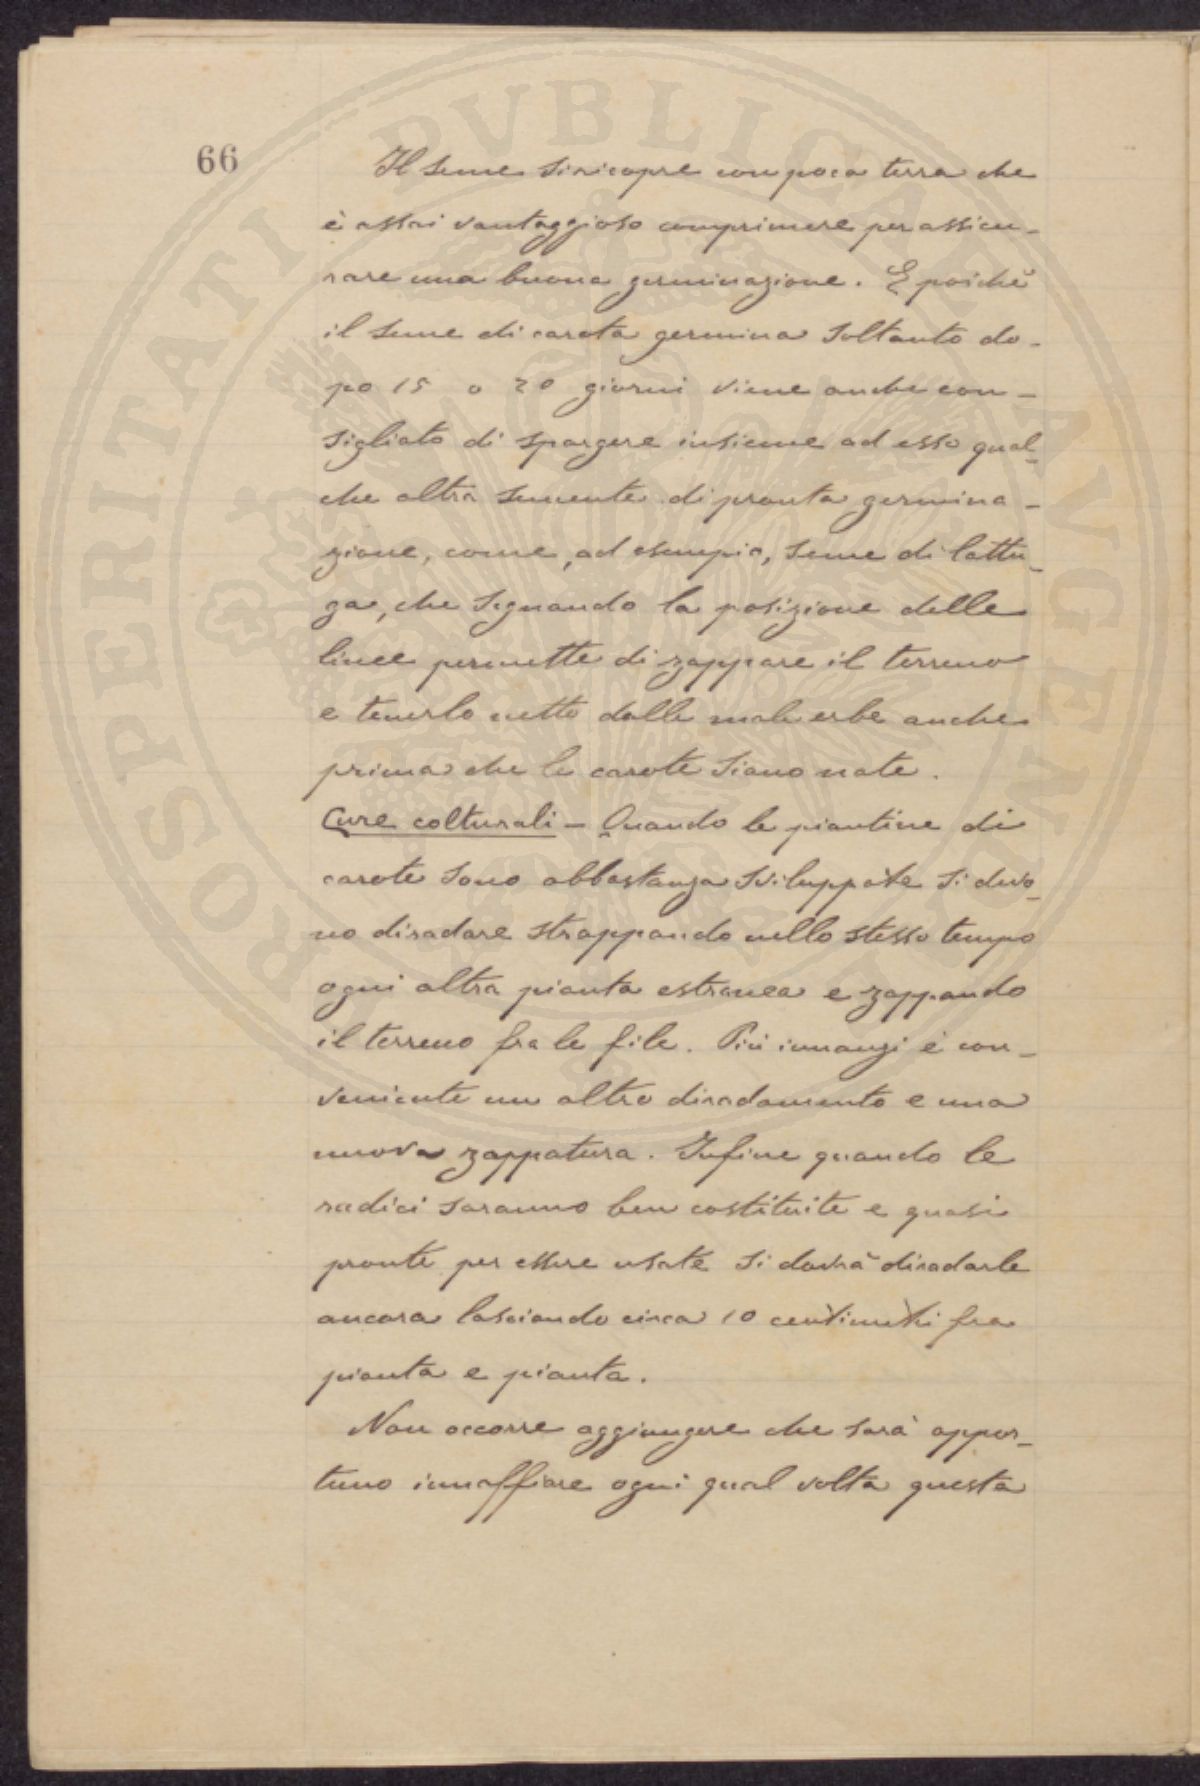 PROSPERITATI PVBLICAE AVGENDAE
66
Il seme si ricopre con poca terra che
è assai vantaggioso comprimere per assicu-
rare una buona germinazione. E poichè
il seme di carota germina soltanto do-
po 15 o 20 giorni viene anche con-
sigliato di spargere insieme ad esso qual-
che altra semente di pronta germina-
zione, come, ad esempio, seme di lattu-
ga, che segnando la posizione delle
linee permette di zappare il terreno
e tenerlo netto dalle male erbe anche
prima che le carote siano nate.
Cure colturali - Quando le piantine di
carote sono abbastanza sviluppate si devo-
no diradare strappando nello stesso tempo
ogni altra pianta estranea e zappando
il terreno fra le file. Più innanzi è con-
veniente un altro diradamento e una
nuova zappatura. Infine quando le
radici saranno ben costituite e quasi
pronte per essere usate si dovrà diradarle
ancora lasciando circa 10 centimetri fra
pianta e pianta.
Non occorre aggiungere che sarà oppor-
tuno innaffiare ogni qual volta questa